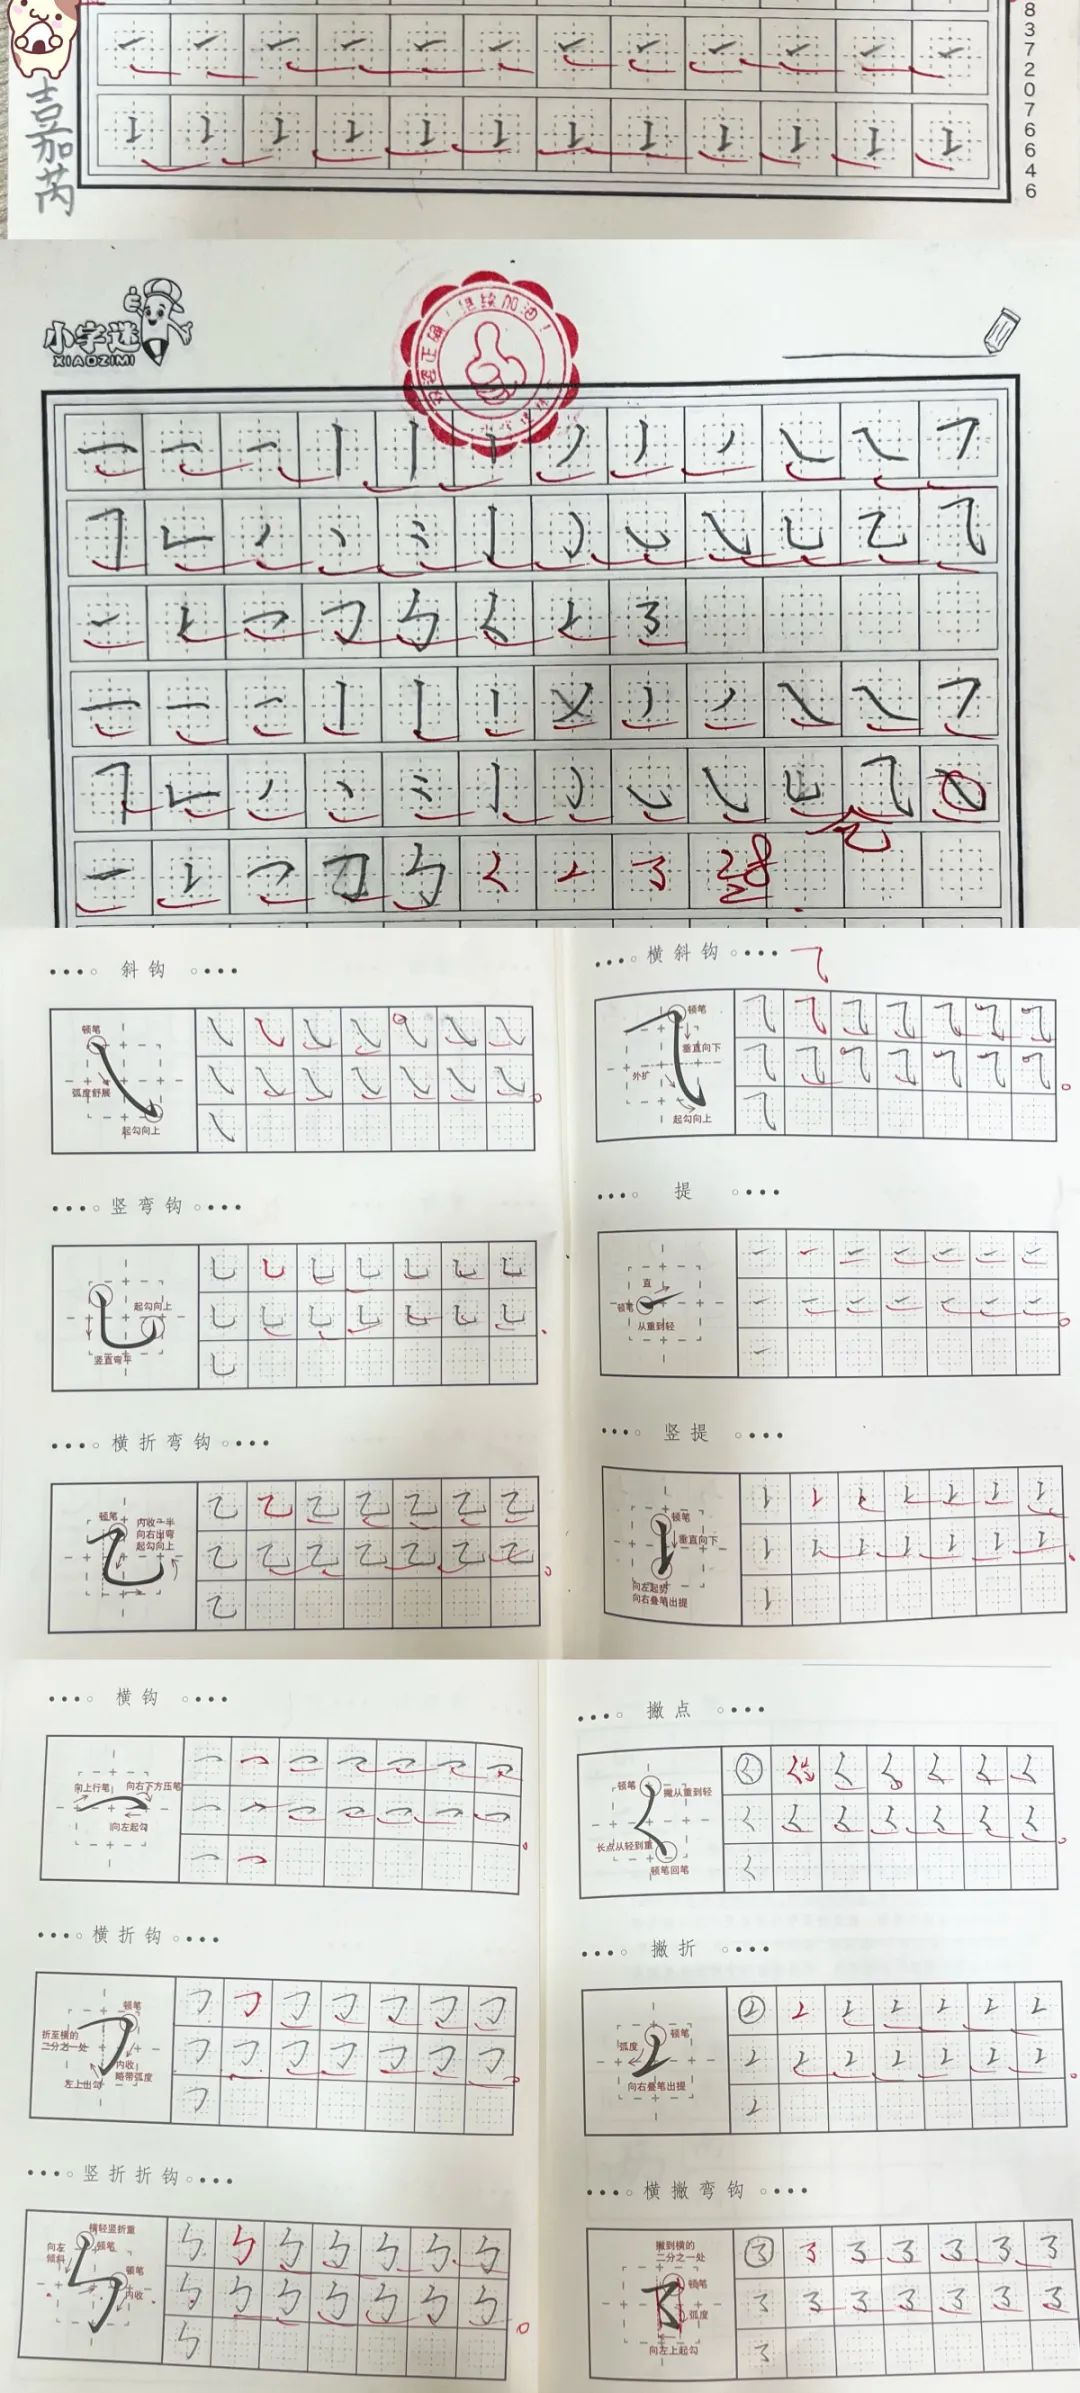 8372076646
吉加芮
小字迷
XIAOZIMI
继续加油！
斜钩
顿笔
弧度舒展
起勾向上
横斜钩
顿笔
垂直向下
外扩
起勾向上
竖弯钩
起勾向上
竖直弯平
提
直
顿笔
从重到轻
横折弯钩
顿笔
内收一半
向右出弯
起勾向上
竖提
顿笔
垂直向下
向左起势
向右叠笔出提
横钩
向上行笔
向右下方压笔
向左起勾
撇点
顿笔
撇从重到轻
长点从轻到重
顿笔回笔
横折钩
顿笔
折至横的
二分之一处
内收
略带弧度
左上出勾
撇折
顿笔
弧度
向右叠笔出提
竖折折钩
横轻竖折重
向左
倾斜
顿笔
顿笔
内收
横撇弯钩
撇到横的
二分之一处
顿笔
弧度
向左上起勾